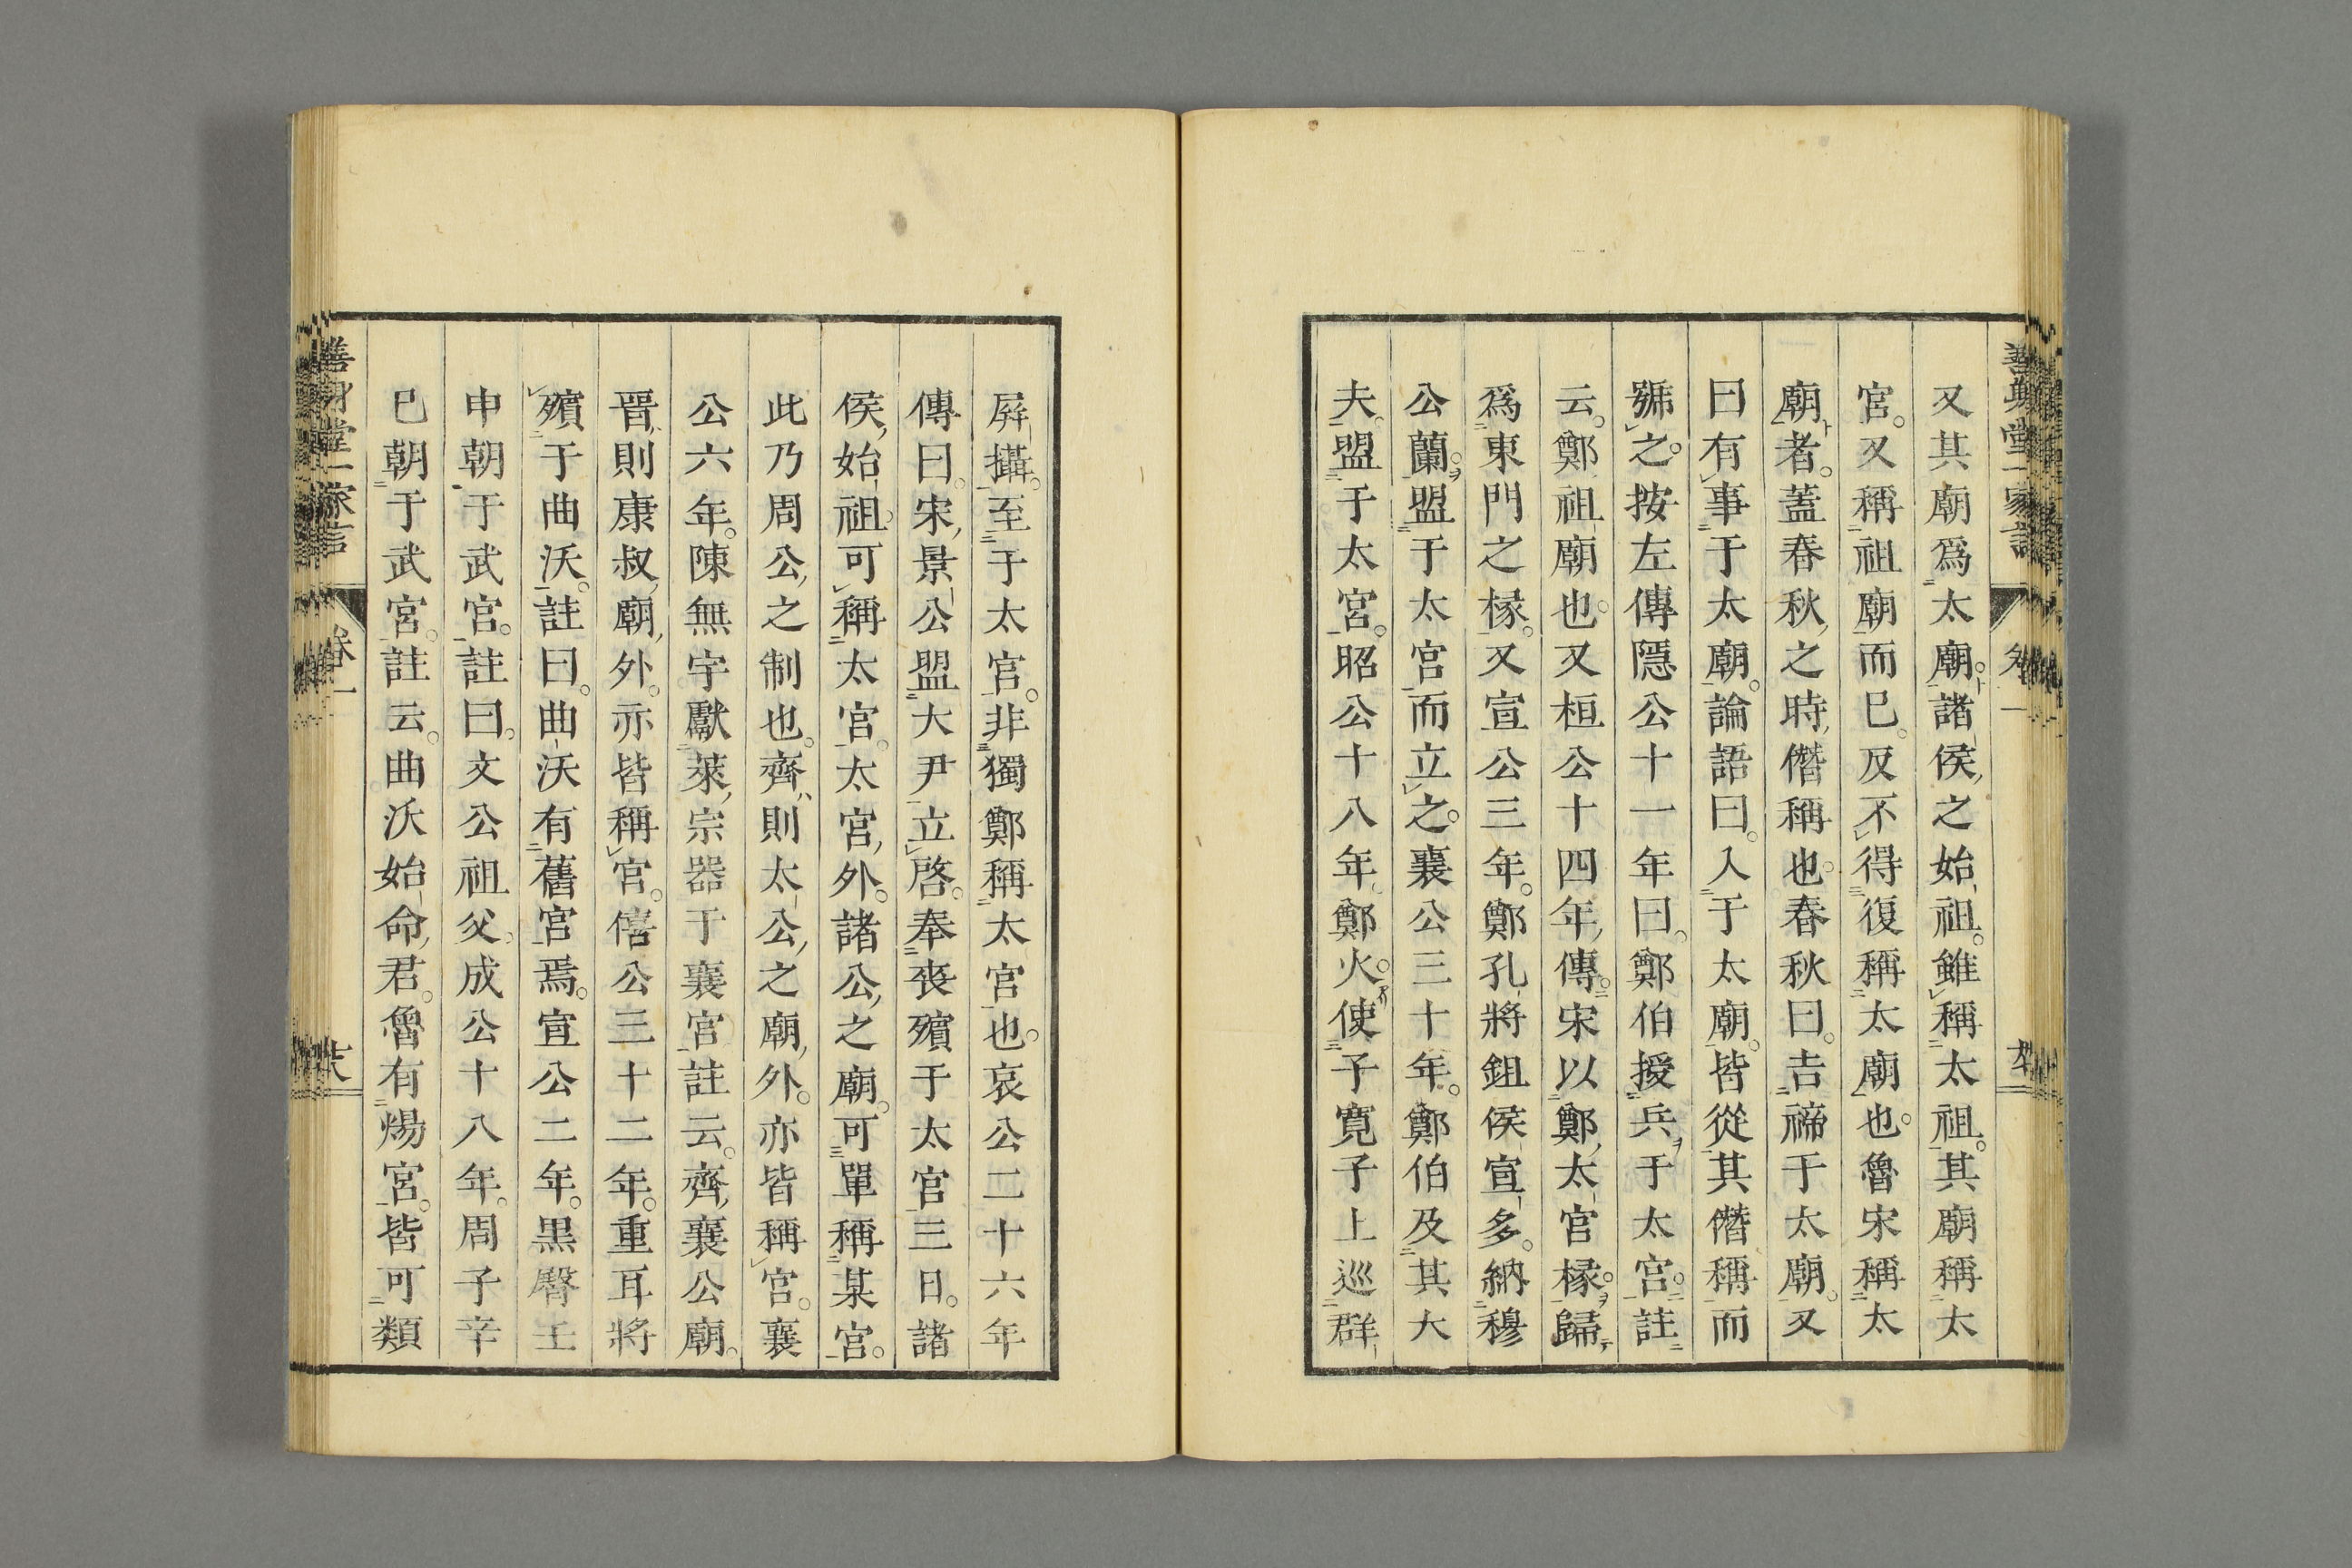 又其廟爲太廟諸侯之始祖雖稱太祖其廟稱太
宮又稱祖廟而已反不得復稱太廟也魯宋稱太
廟者蓋春秋之時僭稱也春秋曰吉禘于太廟又
曰有事于太廟論語曰入于太廟皆從其僭稱而
號之按左傳隱公十一年曰鄭伯授兵于太宮註
云鄭祖廟也又桓公十四年傳宋以鄭太宮椽歸
爲東門之椽又宣公三年鄭孔將鉏侯宣多納穆
公蘭盟于太宮而立之襄公三十年鄭伯及其大
夫盟于太宮昭公十八年鄭火使子寬子上巡群
屏攝至于太宮非獨鄭稱太宮也哀公二十六年
傳曰宋景公盟大尹立啓奉喪殯于太宮三日諸
侯始祖可稱太宮太宮外諸公之廟可單稱某宮
此乃周公之制也齊則太公之廟外亦皆稱宮襄
公六年陳無宇獻萊宗器于襄宮註云齊襄公廟
晋則康叔廟外亦皆稱宮僖公三十二年重耳將
殯于曲沃註曰曲沃有舊宮焉宣公二年黑臀壬
申朝于武宮註曰文公祖父成公十八年周子辛
巳朝于武宮註云曲沃始命君魯有煬宮皆可類
卷一